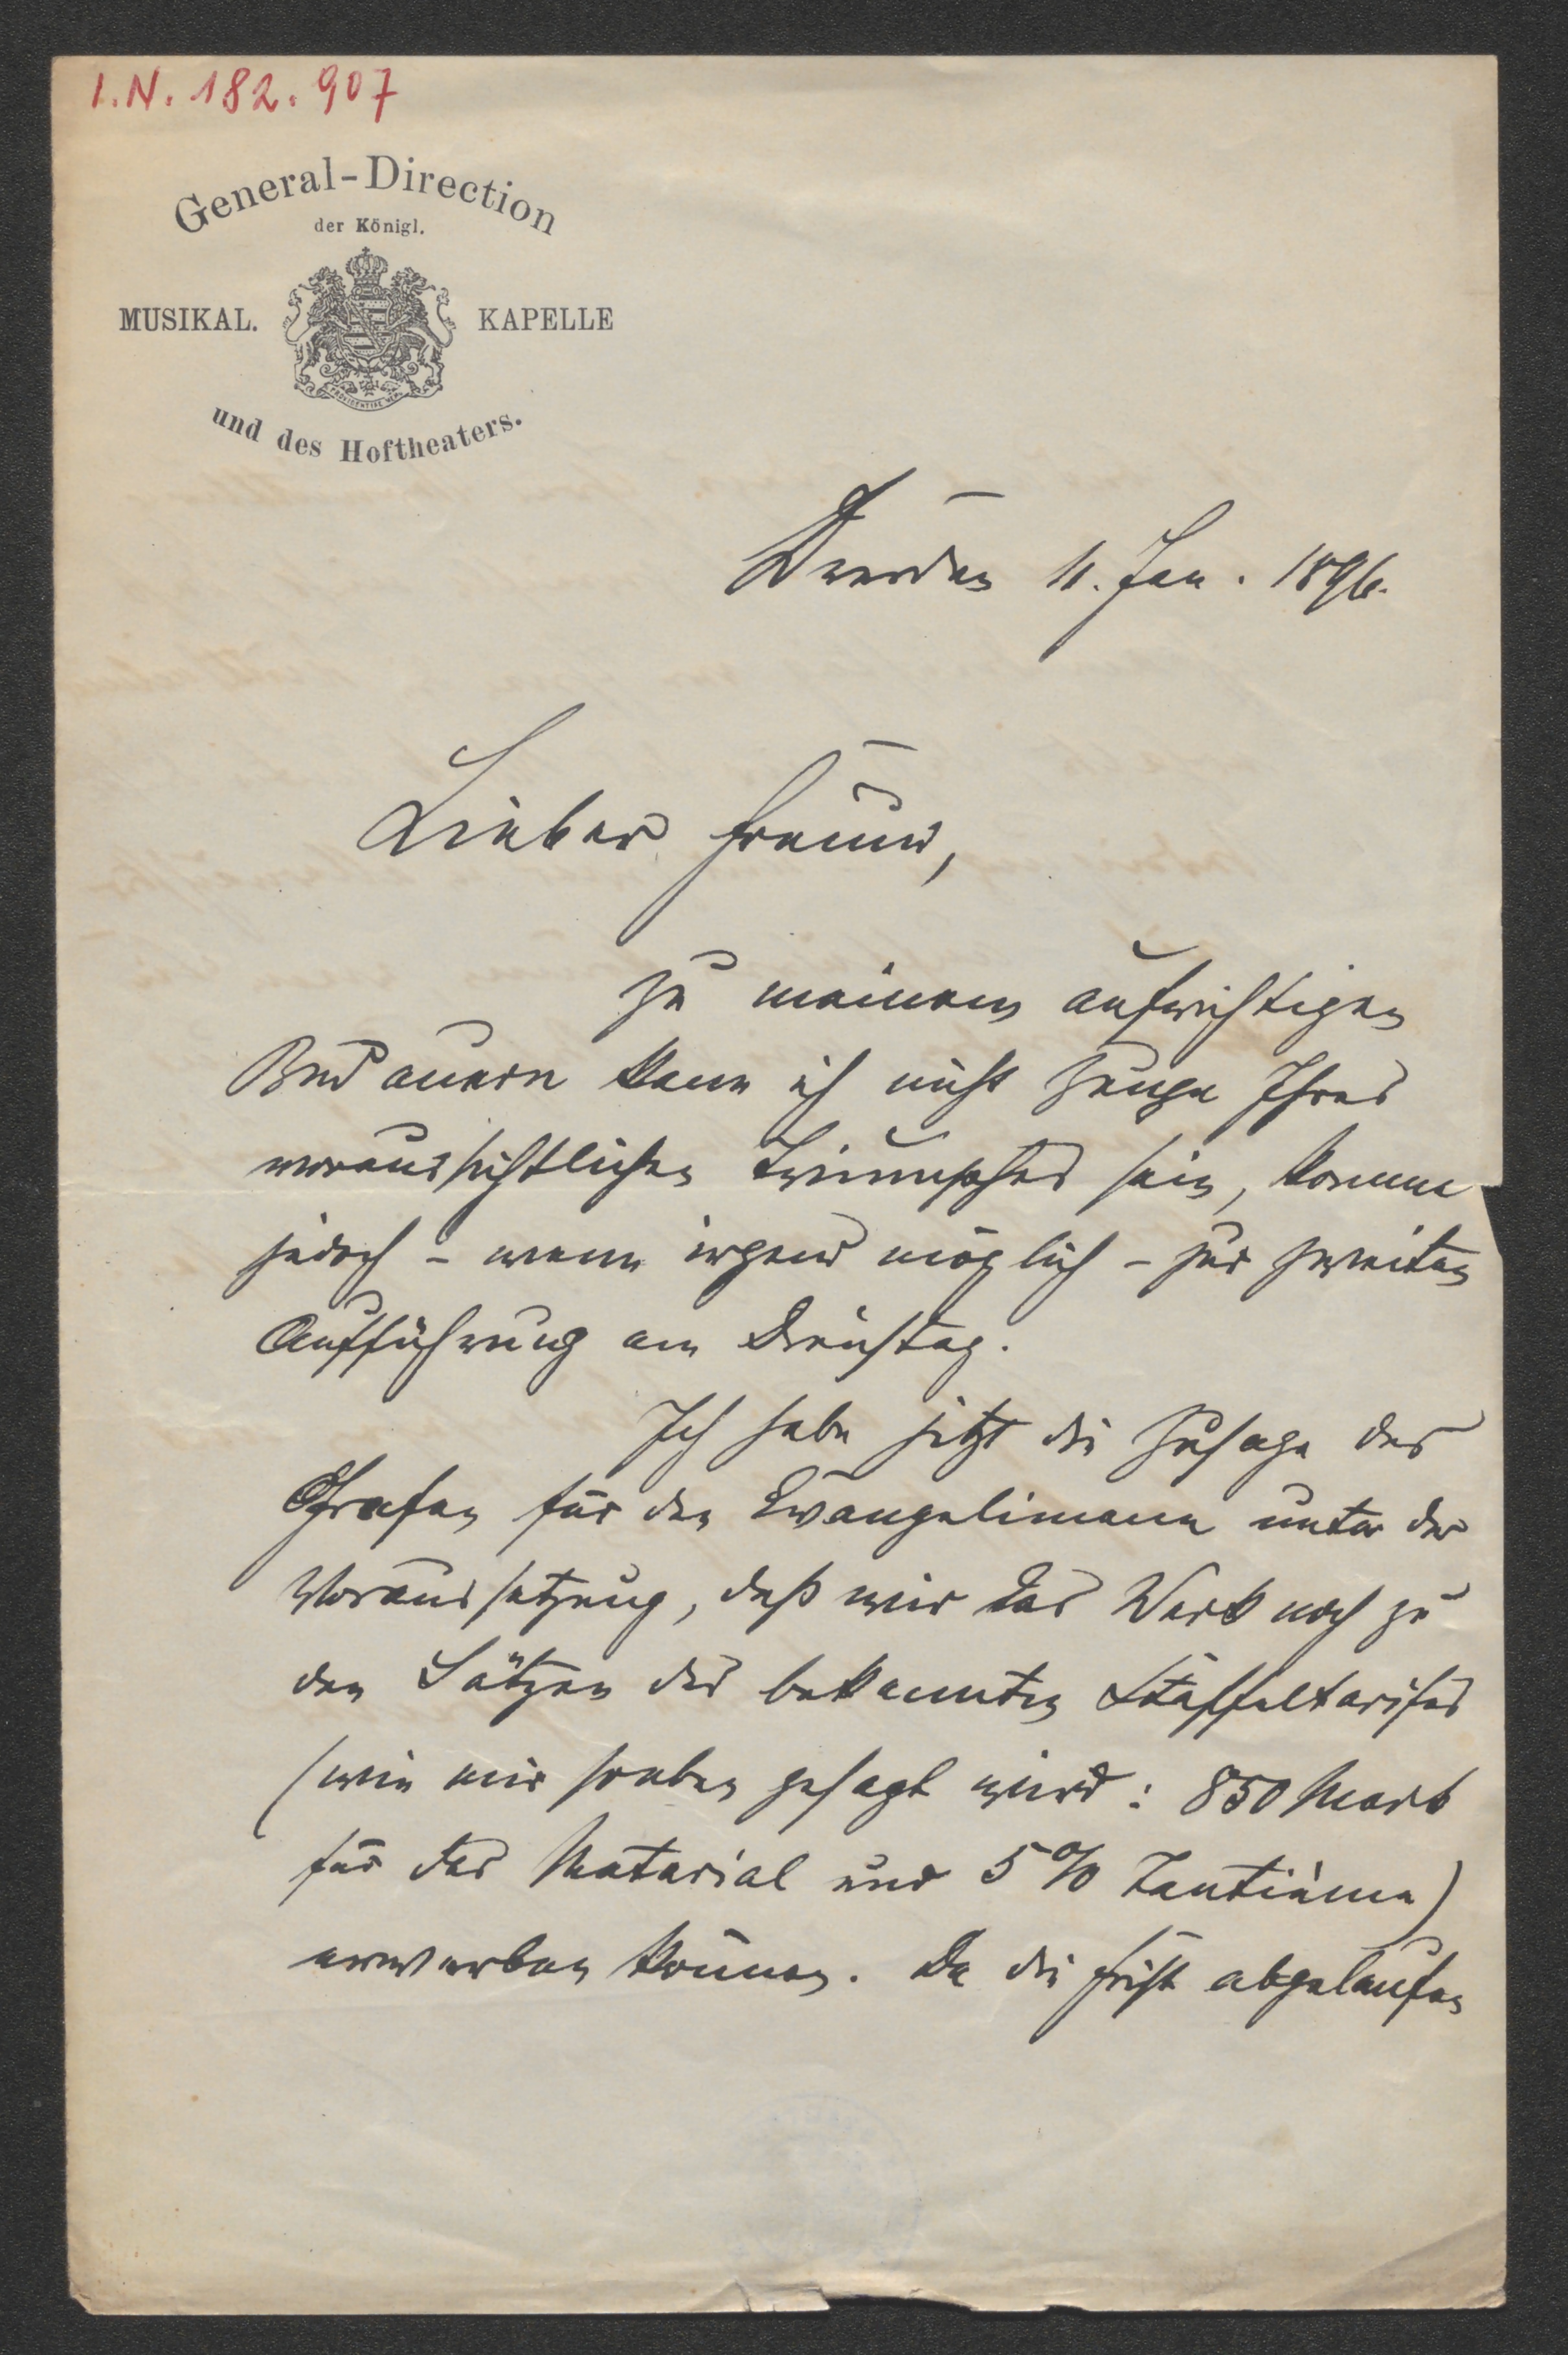 I.N. 182.907
General-Direction
der Königl.
MUSIKAL. KAPELLE
und des Hoftheaters.
Dresden 11. Jan. 1896.
Lieber Freund,
zu meinem aufrichtigen
Bedauern kann ich nicht Zeuge Ihres
voraussichtlichen Triumphes sein, komme
jedoch – wenn irgend möglich – zur zweiten
Aufführung am Dienstag.
Ich habe jetzt die Zusage des
Grafen für den Evangelimann unter der
Voraussetzung, daß wir das Werk noch zu
den Sätzen des bekannten Staffeltarifes
(wie mir soeben gesagt wird: 850 Mark
für das Material und 5% Tantième)
erwerben können. Da die Frist abgelaufen